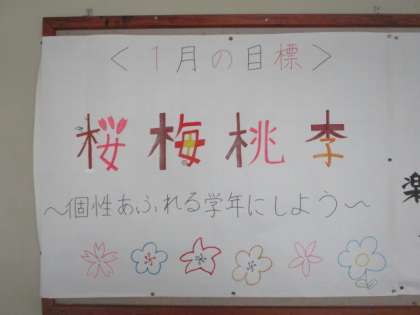 ＜1月の目標＞
桜梅桃李
～個性あふれる学年にしよう～
楽